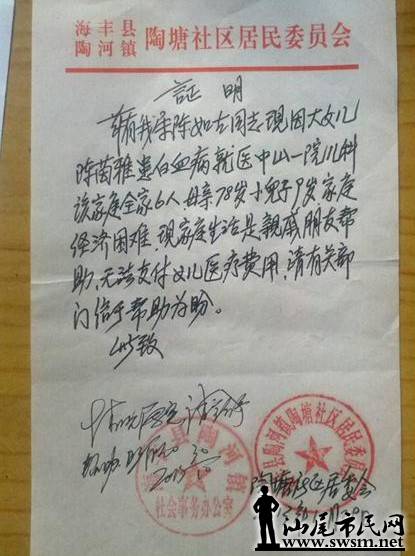 海丰县
陶河镇 陶塘社区居民委员会
証明
兹有我居陈如左同志现因大女儿
陈茵雅患白血病就医中山一院儿科
该家庭全家6人母亲78岁小儿子9岁家庭
经济困难 现家庭生活是亲戚朋友帮
助、无法支付女儿医疗费用,请有关部
门给予帮助为盼。
此致
情况属实
陶塘社区居委会
海丰县陶河镇陶塘社区居民委员会
县陶河镇
社会事务办公室
汕尾市民网
www.swsm.net